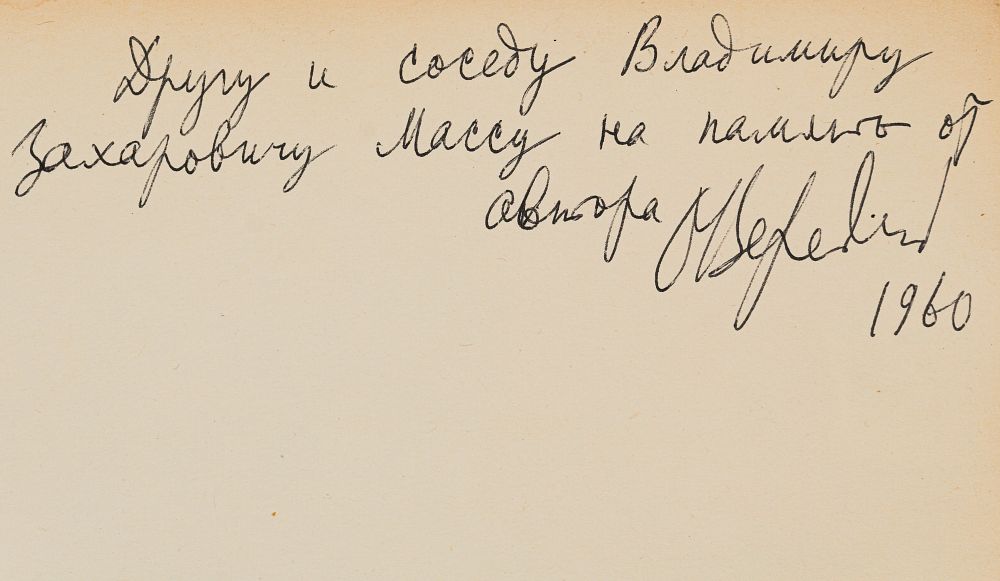 Другу и соседу Владимиру
Захаровичу Массу на память от
автора
1960